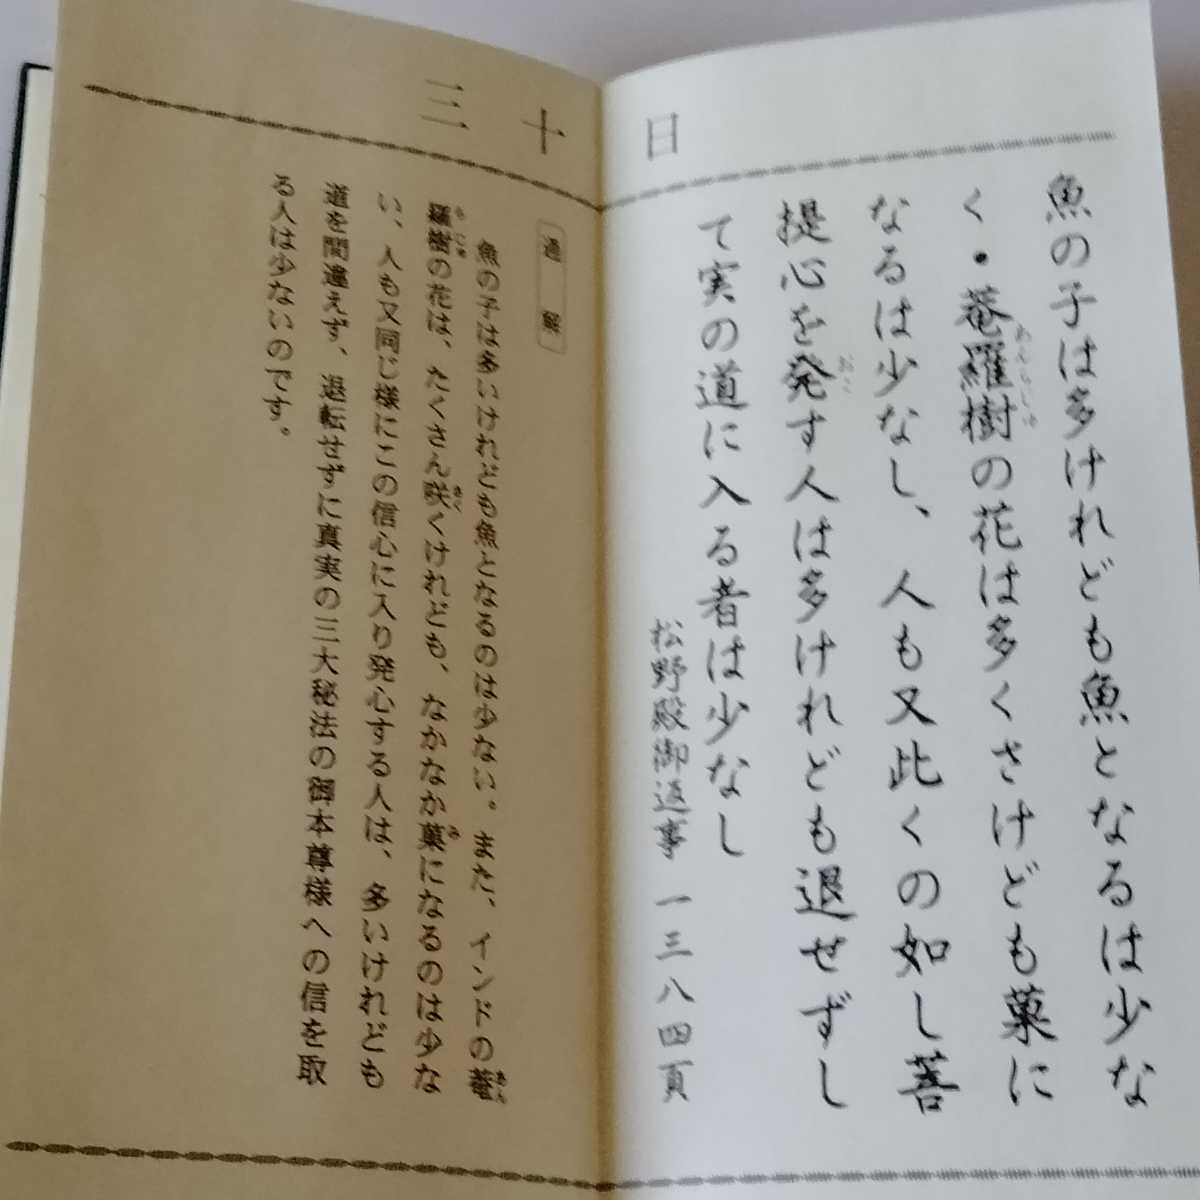 三十日
魚の子は多けれども魚となるは少な
く・菴羅樹の花は多くさけども菓に
なるは少なし、人も又此くの如し菩
提心を発す人は多けれども退せずし
て実の道に入る者は少なし
松野殿御返事 一三八四頁
通解
魚の子は多いけれども魚となるのは少ない。また、インドの菴
羅樹の花は、たくさん咲くけれども、なかなか菓になるのは少な
い、人も又同じ様にこの信心に入り発心する人は、多いけれども
道を間違えず、退転せずに真実の三大秘法の御本尊様への信を取
る人は少ないのです。